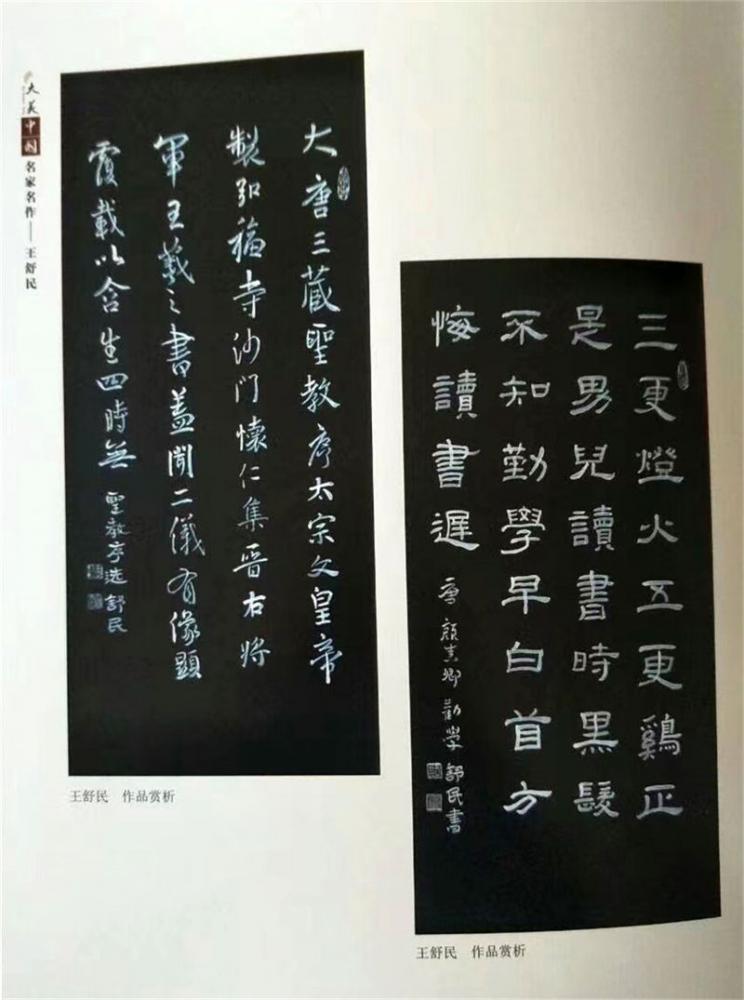 大美中国
名家名作——王舒民
大唐三藏聖教序太宗文皇帝
製弘福寺沙门懷仁集晋右将
軍王羲之書盖聞二儀有像顕
覆載以含生四時無
聖教序选舒民
王舒民 作品赏析
三更燈火五更鷄正
是男兒讀書時黑髮
不知勤學早白首方
悔讀書遲
唐顔真卿勸学舒民書
王舒民 作品赏析